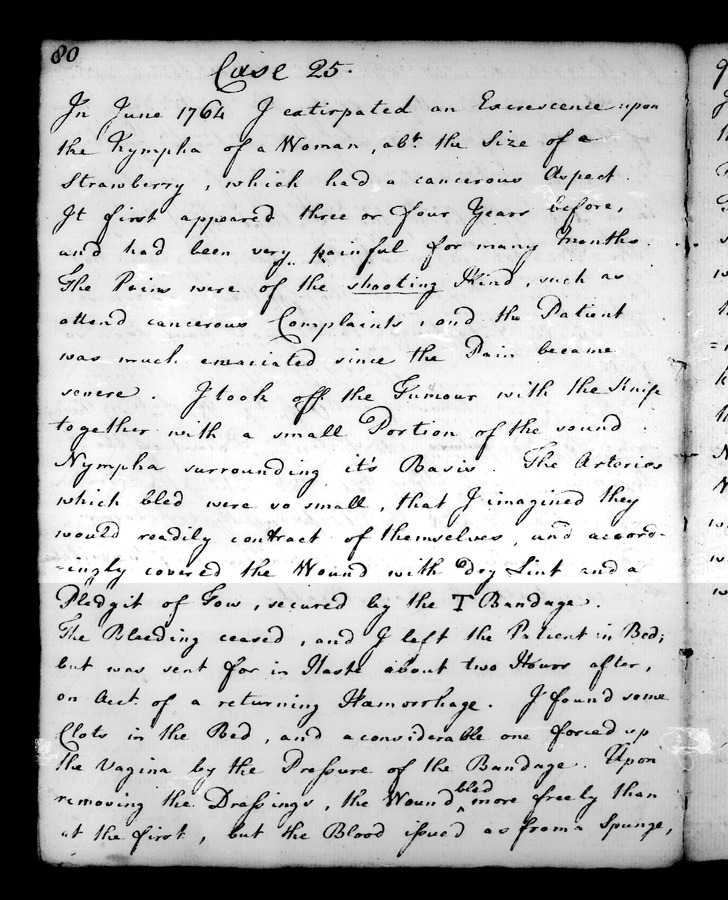 80
Case 25.
In June 1764 I extirpated an Excrescence upon
the Nympha of a Woman, abt. the Size of a
Strawberry, which had a cancerous Aspect.
It first appeared three or four Years before,
and had been very painful for many Months.
The Pains were of the shooting Kind, such as
attend cancerous Complaints, and the Patient
was much emaciated since the Pain became
severe. I took off the Tumour with the Knife
together with a small Portion of the sound
Nympha surrounding it's Basis. The Arteries
which bled were so small, that I imagined they
would readily contract of themselves, and accord-
-ingly covered the Wound with dry Lint and a
Pledgit of Tow, secured by the T Bandage.
The Bleeding ceased, and I left the Patient in Bed;
but was sent for in Haste about two Hours after,
on Acct. of a returning Hæmorrhage. I found some
Clots in the Bed, and a considerable one forced up
the Vagina by the Pressure of the Bandage. Upon
removing the Dressings, the Wound bled more freely than
at the first, but the Blood issued as from a Spunge,